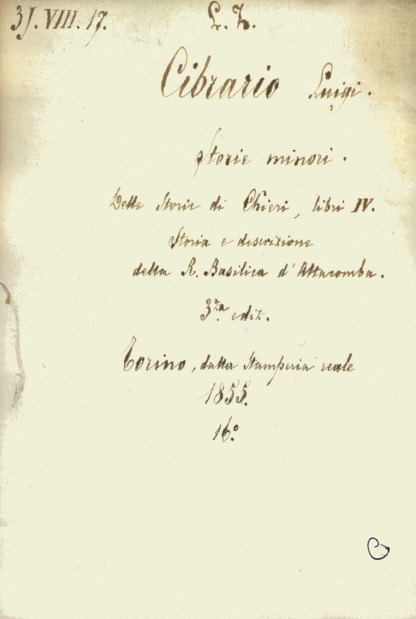 3J. VIII. 17. L. Z.
Cibrario Luigi.
Storie minori.
Delle Storie di Chieri, libri IV.
Storia e descrizione
della R. Basilica d'Altacomba.
3.za edit.
Torino, dalla Stamperia reale
1855.
16.º